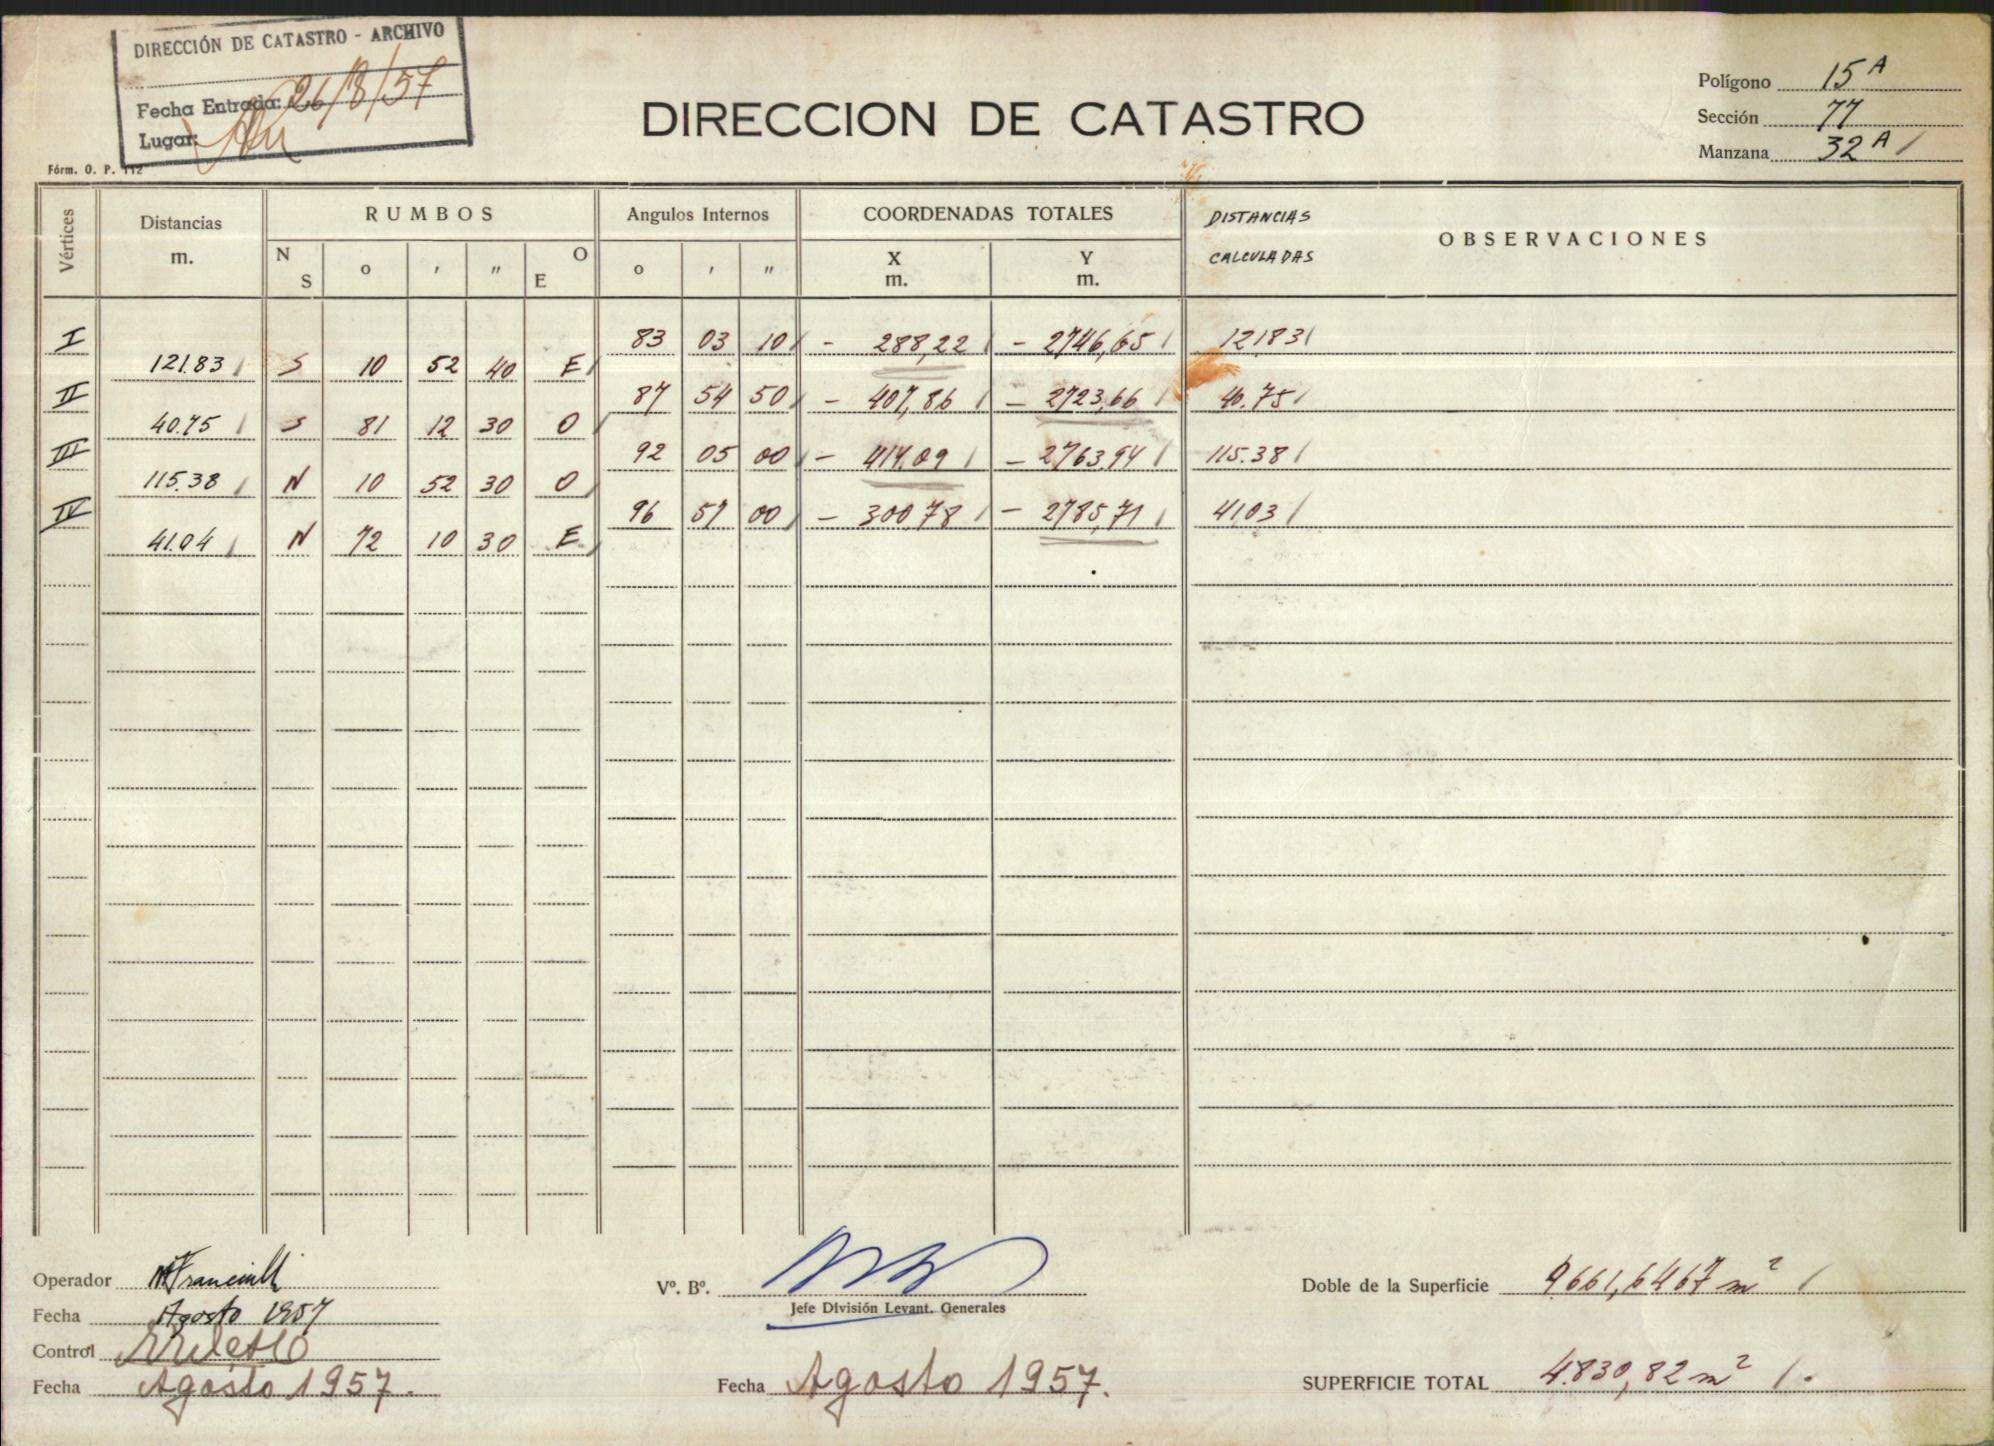 DIRECCIÓN DE CATASTRO - ARCHIVO
Fecha Entrada: 26/8/57
Lugar:
Fórm. O. P. 112
DIRECCION DE CATASTRO
Polígono 15 A
Sección 77
Manzana 32 A /
Vértices Distancias m. RUMBOS N S o ' " O E Angulos Internos o ' " COORDENADAS TOTALES X m. Y m. DISTANCIAS CALCULADAS OBSERVACIONES
I 83 03 10 / - 288,22 / - 2746,65 / 121.83 /
121.83 / S 10 52 40 E /
II 87 54 50 / - 407,86 / - 2723,66 / 40.75 /
40.75 / S 81 12 30 O /
III 92 05 00 / - 414,09 / - 2763,94 / 115.38 /
115.38 / N 10 52 30 O /
IV 96 57 00 / - 300,78 / - 2785,71 / 41,03 /
41.04 / N 72 10 30 E /
Operador
Fecha Agosto 1957
Control
Fecha Agosto 1957.
Vº. Bº.
Jefe División Levant. Generales
Fecha Agosto 1957.
Doble de la Superficie 9661,6467 m² /
SUPERFICIE TOTAL 4.830,82 m² / .